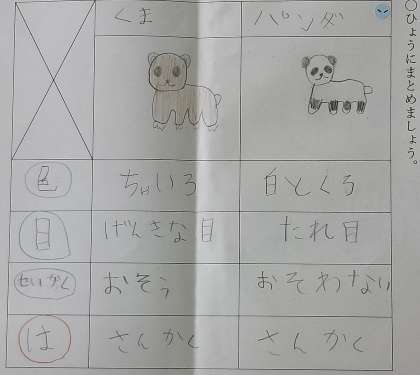 ○ひょうにまとめましょう。
くま パンダ
色 ちゃいろ 白とくろ
目 げんきな目 たれ目
せいかく おそう おそわない
は さんかく さんかく